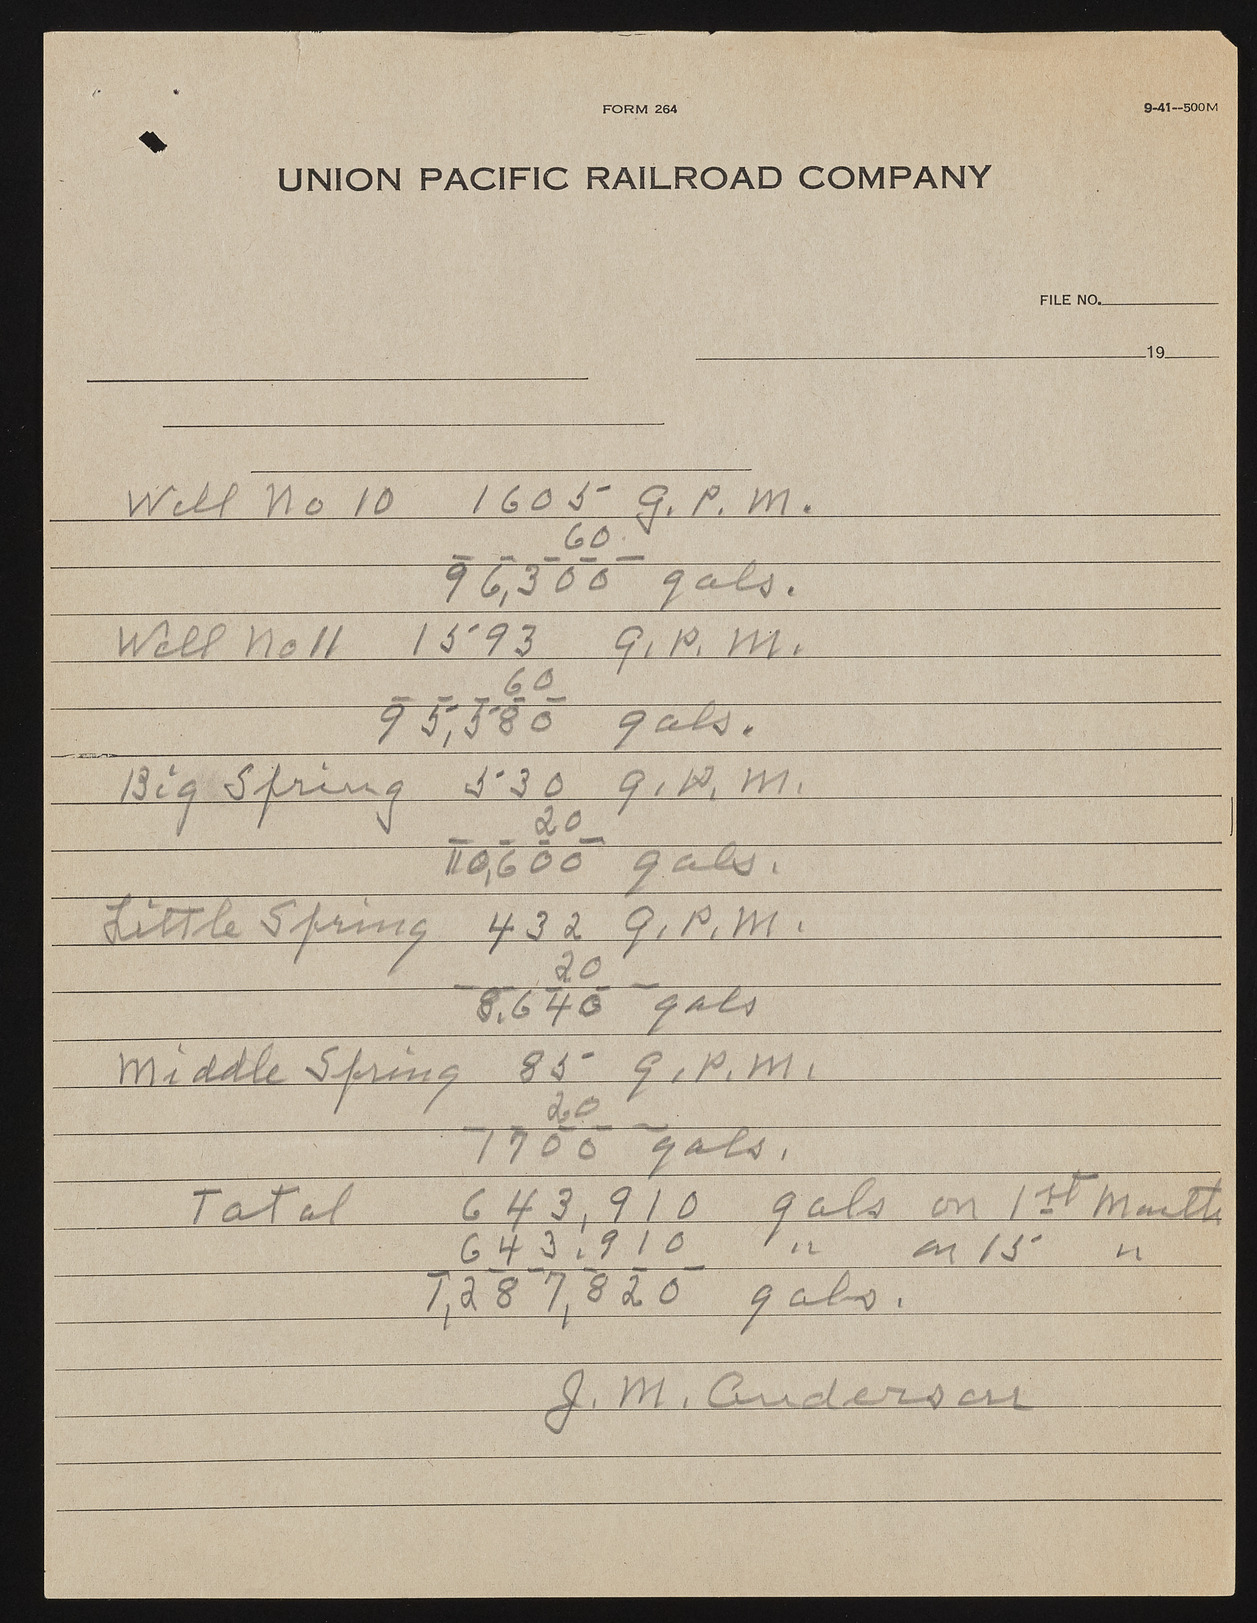 FORM 264
9-41--500M
UNION PACIFIC RAILROAD COMPANY
FILE NO.
19
Well No 10 1605 G.P.M.
60
96,300 gals.
Well No 11 1593 G.P.M.
60
95,580 gals.
Big Spring 530 G.P.M.
20
10,600 gals.
Little Spring 432 G.P.M.
20
8,640 gals
Middle Spring 85 G.P.M.
20
1700 gals.
Total 643,910 gals on 1st Month
643,910 " on 15 "
1,287,820 gals.
J. M. Anderson